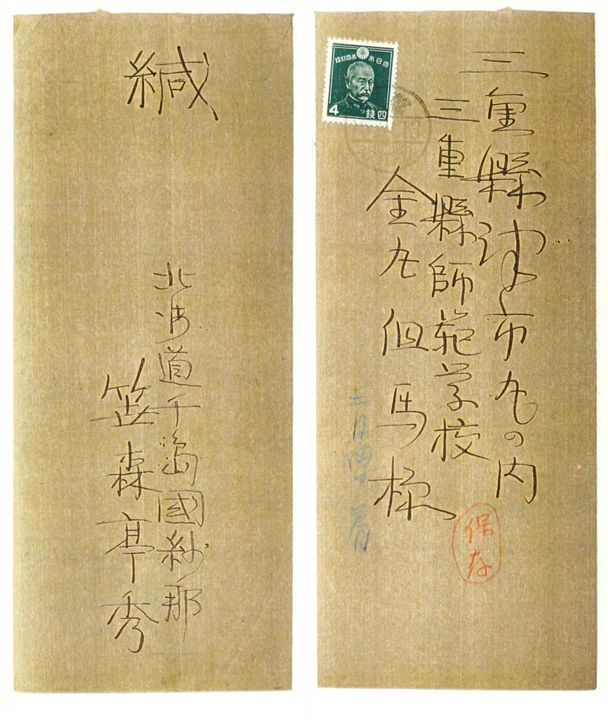 緘
北海道千島國紗那
笠森亭秀
大日本帝國郵便
4
四銭
三重縣津市丸の内
三重縣師範学校
金丸但馬様
二月四日着
保存